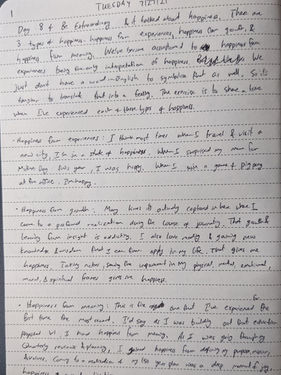 1
TUESDAY 7/27/21
Day 8 of & it talked about happiness. There are
3 types of happiness. happiness from experiences, happiness from growth, &
happiness from meaning. We've become accustomed to happiness from
experiences being the only interpretation of happiness. We
just don't have a word in English to symbolize that as well, so its
to translate that into a feeling. The exercise is to share a time
when I've experienced each of these types of happiness.
· Happiness from experiences: I think most times when I travel & visit a
new city, I'm in a state of happiness. When I surprised my mom for
Mother's Day this year, I was happy. When I win a game of Ping pong
at the office, I'm happy.
· Happiness from growth: Many times it actually happened when I
came to a profound realization during the course of journaling. That growth &
learning from insight is addicting. I also love reading & gaining new
knowledge & wisdom that I can apply in my life. That gives me
happiness. Taking notes, seeing the improvement in my physical, mental, emotional,
moral, & spiritual frames gives me happiness.
· Happiness from meaning: This is one but I've experienced for
first time the most recent. I'd say as I was building out that
physical I found happiness from meaning. As I was going through
Quarterly reviews & planning, I happiness from defining my purpose, mission,
to a realization of my life plan was a day
happiness